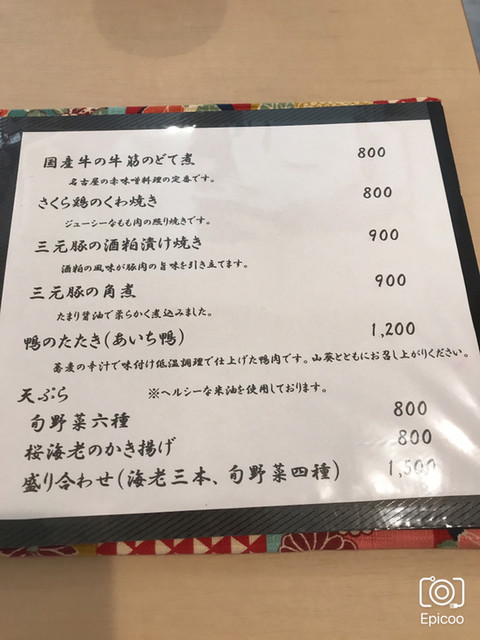 国産牛の牛筋のどて煮 800
名古屋の赤味噌料理の定番です。
さくら鶏のくわ焼き 800
ジューシーなもも肉の照り焼きです。
三元豚の酒粕漬け焼き 900
酒粕の風味が豚肉の旨味を引き立てます。
三元豚の角煮 900
たまり醤油で柔らかく煮込みました。
鴨のたたき(あいち鴨) 1,200
蕎麦の辛汁で味付け低温調理で仕上げた鴨肉です。山葵とともにお召し上がりください。
天ぷら ※ヘルシーな米油を使用しております。
旬野菜六種 800
桜海老のかき揚げ 800
盛り合わせ(海老三本、旬野菜四種) 1,500
Epicoo